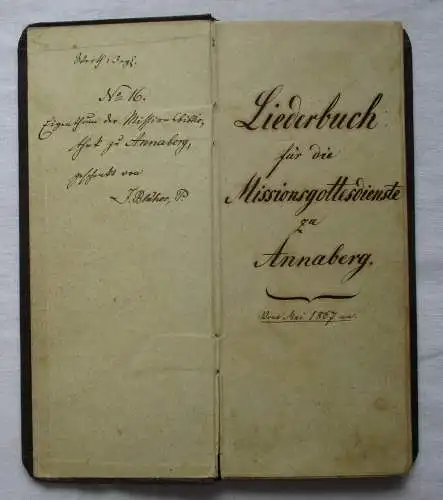 Werth 1 Ngr.
No 16.
Eigenthum der Missionsbiblio-
thek zu Annaberg,
geschenkt von
J. Blüher, P.
Liederbuch
für die
Missionsgottesdienste
zu
Annaberg.
Vom Mai 1867 an.